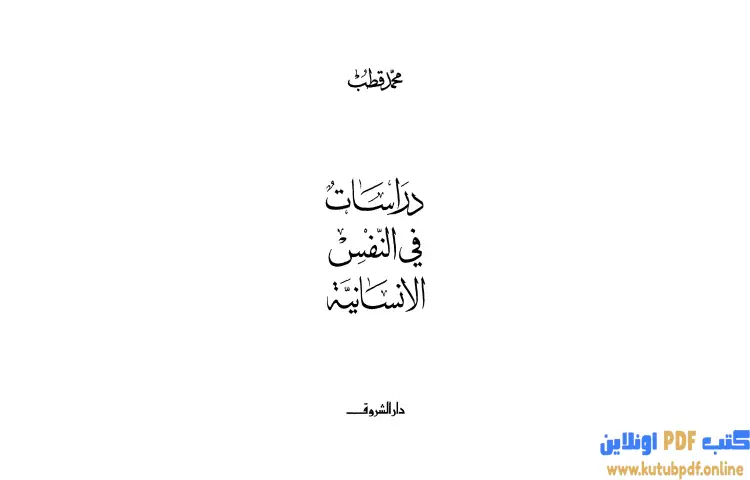 محمد قطب
دراسات
في النفس
الانسانية
دار الشروق
كتب PDF اونلاين
www.kutubpdf.online